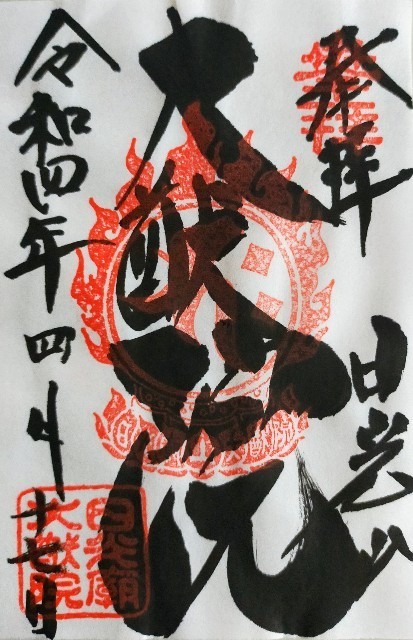 奉拝
日光山
大猷院
令和四年四月十七日
日光廟
大猷院